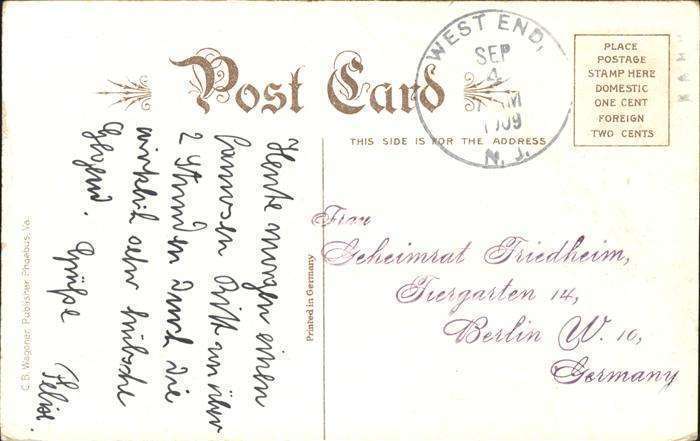 Post Card
THIS SIDE IS FOR THE ADDRESS
WEST END,
SEP
4
AM
1909
N. J.
PLACE
POSTAGE
STAMP HERE
DOMESTIC
ONE CENT
FOREIGN
TWO CENTS
Heute morgen einen
famosen Ritt von über
2 Stunden durch die
wirklich sehr hübsche
Gegend. Grüße
Felix.
Frau
Geheimrat Friedheim,
Tiergarten 14,
Berlin W. 10,
Germany
Printed in Germany
C. B. Wagoner, Publisher, Phoebus, Va.